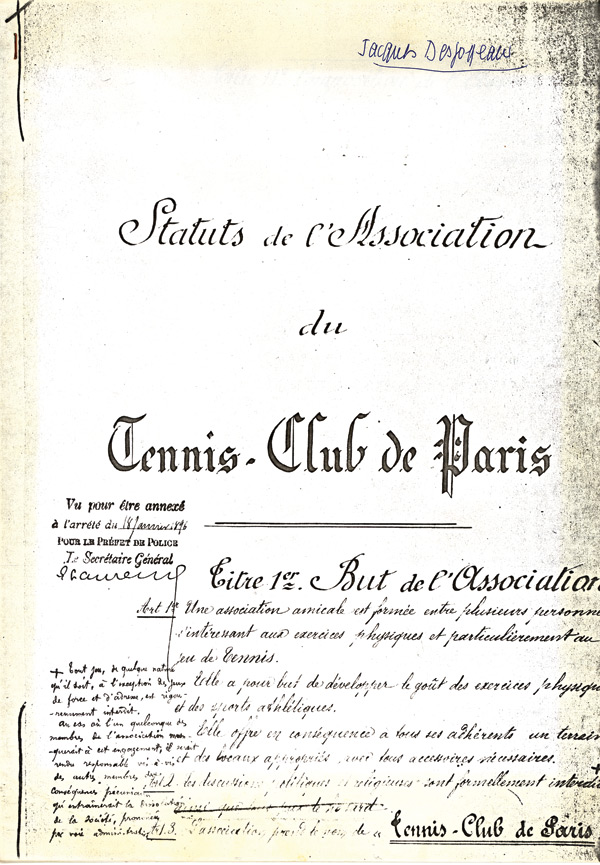 Jacques
Statuts de l'Association
du
Tennis-Club de Paris
Vu pour être annexé
à l'arrêté du 18 Janvier 1896
POUR LE PRÉFET DE POLICE
Le Secrétaire Général
Titre 1er. But de l'Association
Art 1er Une association amicale est formée entre plusieurs personne
s'intéressant aux exercices physiques et particulièrement au
jeu de Tennis.
Elle a pour but de développer le goût des exercices physique
et des sports athlétiques.
Elle offre en conséquence à tous ses adhérents un terrain
et des locaux appropriés, avec tous accessoires nécessaires.
les discussions politiques religieuses sont formellement interdi
L'association prend le nom de « Tennis-Club de Paris
+ Tout jeu, de quelque nature
qu'il soit, à l'exception des jeux
de force et d'adresse, est rigou-
reusement interdit.
Au cas où l'un quelconque des
membres de l'association man-
querait à cet engagement, il serait
rendu responsable vis à vis
des autres membres des
conséquences pécuniaires
qu'entraînerait la dissolution
de la société, prononcée
par voie administrative